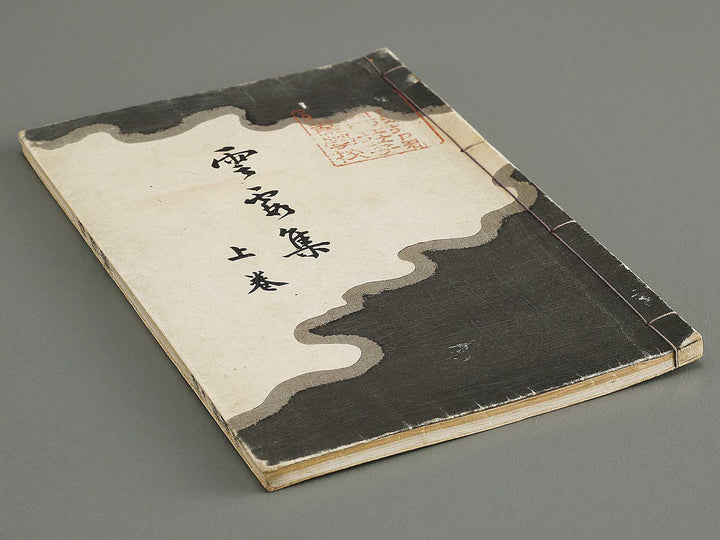 雲霞集
上巻